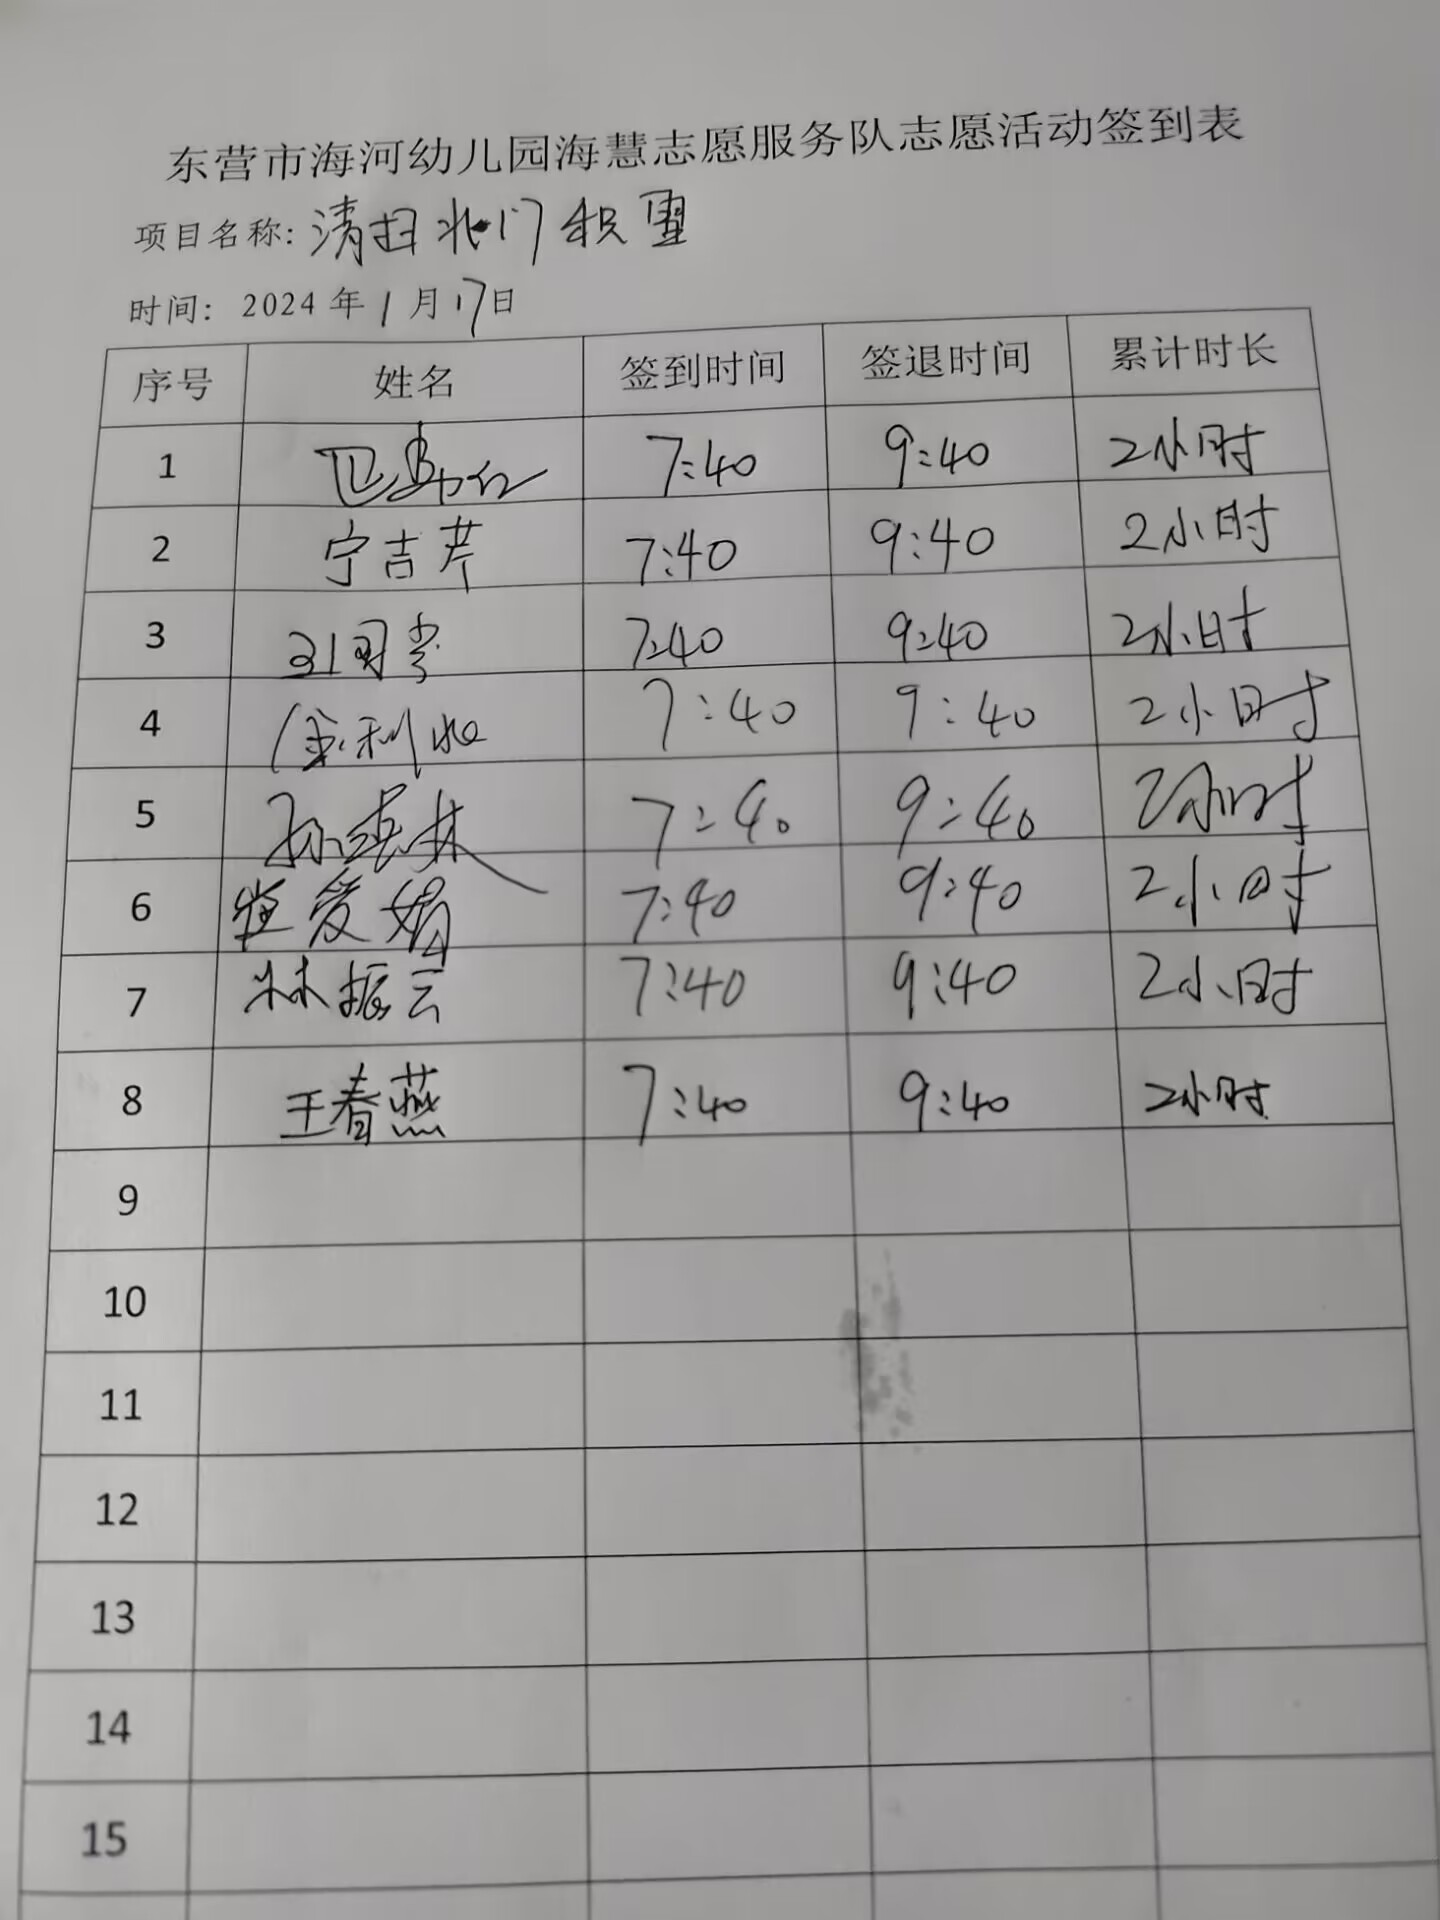 东营市海河幼儿园海慧志愿服务队志愿活动签到表
项目名称: 清扫北门积雪
时间: 2024年1月17日
序号 姓名 签到时间 签退时间 累计时长
1 7:40 9:40 2小时
2 宁吉芹 7:40 9:40 2小时
3 7:40 9:40 2小时
4 7:40 9:40 2小时
5 7:40 9:40 2小时
6 崔爱娟 7:40 9:40 2小时
7 林振云 7:40 9:40 2小时
8 王春燕 7:40 9:40 2小时
9
10
11
12
13
14
15